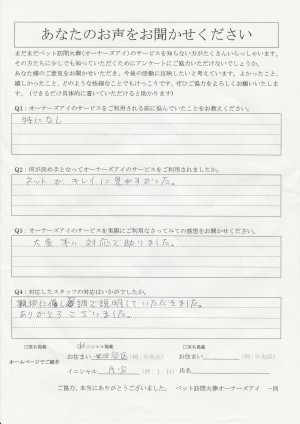 あなたのお声をお聞かせください
まだまだペット訪問火葬(オーナーズアイ)のサービスを知らない方がたくさんいらっしゃいます。
その方たちに少しでも知っていただくためにアンケートにご協力いただけないでしょうか。
あなた様のご意見をお聞かせいただき、今後の活動に反映したいと考えています。よかったこと、
嬉しかったこと、どのような些細なことでもけっこうです。ぜひご協力をよろしくお願いいたしま
す。(できるだけ具体的に書いていただけると助かります)
Q1:オーナーズアイのサービスをご利用される前に悩んでいたことをお教えください。
特になし
Q2:何が決め手となってオーナーズアイのサービスをご利用されましたか。
ネットが、キレイに見やすかった。
Q3:オーナーズアイのサービスを実際にご利用なさってみての感想をお聞かせください。
大変 早い 対応で助りました。
Q4:対応したスタッフの対応はいかがでしたか。
親切に優しい口調で説明していただきました。
ありがとうございました。
ホームページでご紹介
□実名掲載
お住まい 世田谷区 (例:中央区)
イニシャル
□匿名掲載
お住まい (例:中央区)
氏名
ご協力、本当にありがとうございました。 ペット訪問火葬オーナーズアイ 一同